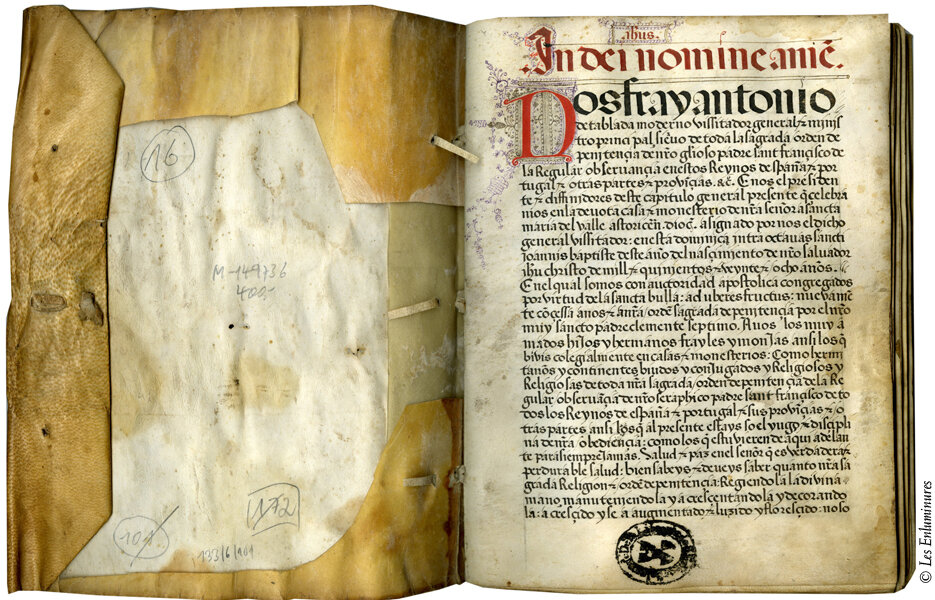 16
M-149736
400.-
172
101
133/6/101
abus.
.In dei nomine amē.
Nos fray antonio
de tablada moderno vissitador general & minis
tro principal, sieruo de toda la sagrada orden de
penitençia de nr̃o glīoso padre sant françisco de
la Regular obseruançia en estos Reynos despaña & por
tugal & otras partes & prouīçias. &c̄. E nos el presiden
te & diffinidores deste capitulo general presente q̃ celebra
mos en la deuota casa & monesterio de nr̃a señora sancta
maria del valle astoricēn. dioc̄. asignado por nos el dicho
general vissitador: en esta dominica intra octauas sancti
Joannis baptiste deste año del nasçimento de nr̃o saluador
ihu christo de mill & quinientos & veynte & ocho años.
En el qual somos con auctoridad apostolica congregados
por virtud de la sancta bulla: ad vberes fructus: nueuamē
te cōçessa a nos & a nr̃a / ordē sagrada de penitençia por el nr̃o
muy sancto padre clemente septimo. A uos los muy a
mados hijos y hermanos frayles y monjas ansi los q̃
biuis colegialmente en casas & monesterios: Como hermi
taños y continentes biudos y conjugados y Religiosos y
Religiosas de toda nr̃a sagrada / orden de penitençia de la Re
gular obseruāçia de nr̃o seraphico padre sant françisco de to
dos los Reynos de españa & portugal & sus prouīçias & / o
tras partes ansi los q̃ al presente estays so el yugo & disçipli
na de nr̃a obediençia: como los q̃ estuuieren de aqui adelan
te para siempre jamas. Salud & paz en el señor q̃ es verdadera &
perdurable salud: bien sabeys & deueys saber quanto nr̃a sa
grada Religion & ordē de penitençia: Regiendola la diuina
mano manuteniendola y acresçentandola y decorando
la: a cresçido y se a augmentado & luzido y floresçido: no so
© Les Enluminures